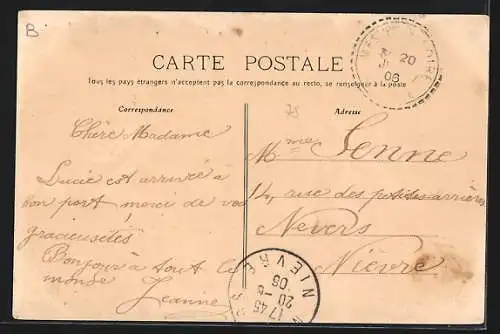 B
CARTE POSTALE
Tous les pays étrangers n'acceptent pas la correspondance au recto, se renseigner à la poste
Correspondance
Adresse
78
Chère Madame
Lucie est arrivée à
bon port, merci de vos
gracieusetés
Bonjour à tout le
monde Jeanne
Mme Senne
14, rue des petites arrières
Nevers
Nièvre
20
06
NIEVRE
17 45
20 -8
06